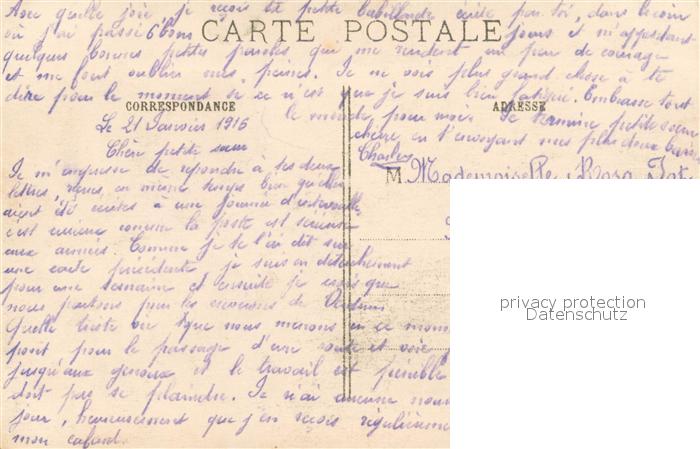 Avec quelle joie je reçois ta petite babillarde écrite par toi, dans le coin
où j'ai passé 6 bons jours et m'apportant
CARTE POSTALE
quelques bonnes petites paroles qui me rendent un peu de courage
et me font oublier mes peines. Je ne vois plus grand chose à te
dire pour le moment si ce n'est que je suis bien fatigué. Embrasse tout
CORRESPONDANCE
ADRESSE
le monde pour moi. Je termine petite soeur
chérie en t'envoyant mes plus doux
Charles
Le 21 Janvier 1916
Chère petite soeur
M Mademoiselle Rosa
Je m'empresse de répondre à tes deux
lettres, reçues en même temps bien qu'elles
aient été écrites à une journée d'intervalle,
c'est curieux comme la poste est sérieuse
aux armées. Comme je te l'ai dit sur
une carte précédente je suis en détachement
pour une semaine et ensuite je crois que
nous partons pour les environs de Verdun
Quelle triste vie que nous menons en ce mom
pour le passage d'une route et voie
jusqu'aux genoux et le travail est pénible
doit pas se plaindre. Je n'ai aucune nou
jour, heureusement que j'en reçois régulièreme
mon cafard.
privacy protection
Datenschutz